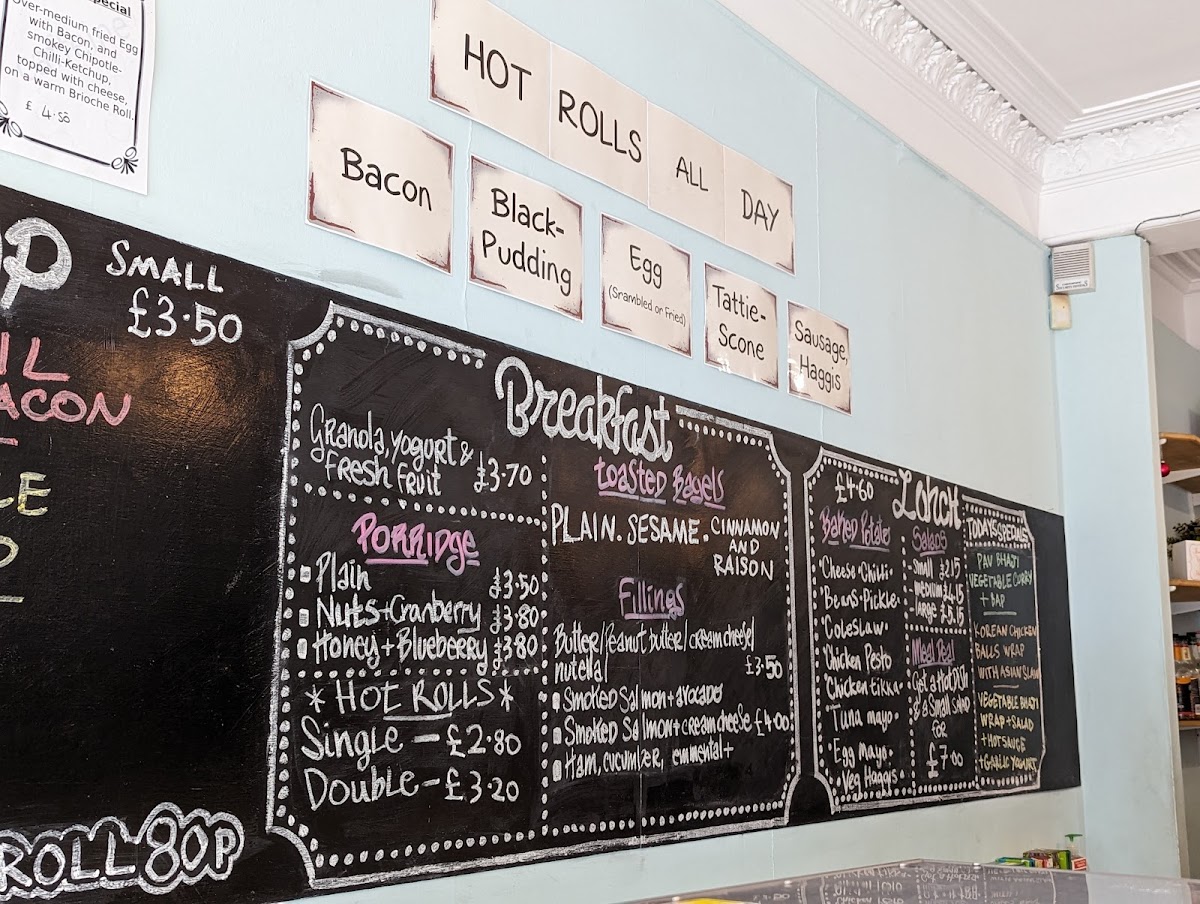 pecial
Over-medium fried Egg
with Bacon, and
smokey Chipotle-
Chilli-Ketchup,
topped with cheese,
on a warm Brioche Roll.
£ 4.50
HOT ROLLS ALL DAY
Bacon
Black-
Pudding
Egg
(Srambled or Fried)
Tattie-
Scone
Sausage,
Haggis
SMALL
£3.50
IL
ACON
ROLL 80P
Breakfast
Granola, yogurt &
fresh fruit £3.70
PORRIDGE
Plain £3.50
Nuts+Cranberry £3.80
Honey+Blueberry £3.80
*HOT ROLLS*
Single - £2.80
Double - £3.20
toasted Bagels
PLAIN. SESAME. CINNAMON
AND
RAISON
Fillings
Butter/Peanut butter/creamcheese/
nutella/ £3.50
Smoked Salmon+avocado
Smoked Salmon+creamcheese £4.00
Ham, cucumber, emmental+
Lunch
£4.60
Baked Potato
Cheese Chilli
Beans Pickle
Coleslaw
Chicken Pesto
Chicken tikka
Tuna mayo
Egg Mayo
Veg Haggis
Salads
Small £2.15
medium £4.15
large £5.15
Meal Deal
Get a Hot Dish
& a Small Salad
for
£7.00
TODAYS SPECIALS
PAV BHAJI
VEGETABLE CURRY
+ BAP
KOREAN CHICKEN
BALLS WRAP
WITH ASIAN SLAW
VEGETABLE BHAJI
WRAP + SALAD
+ HOT SAUCE
+ GARLIC YOGURT